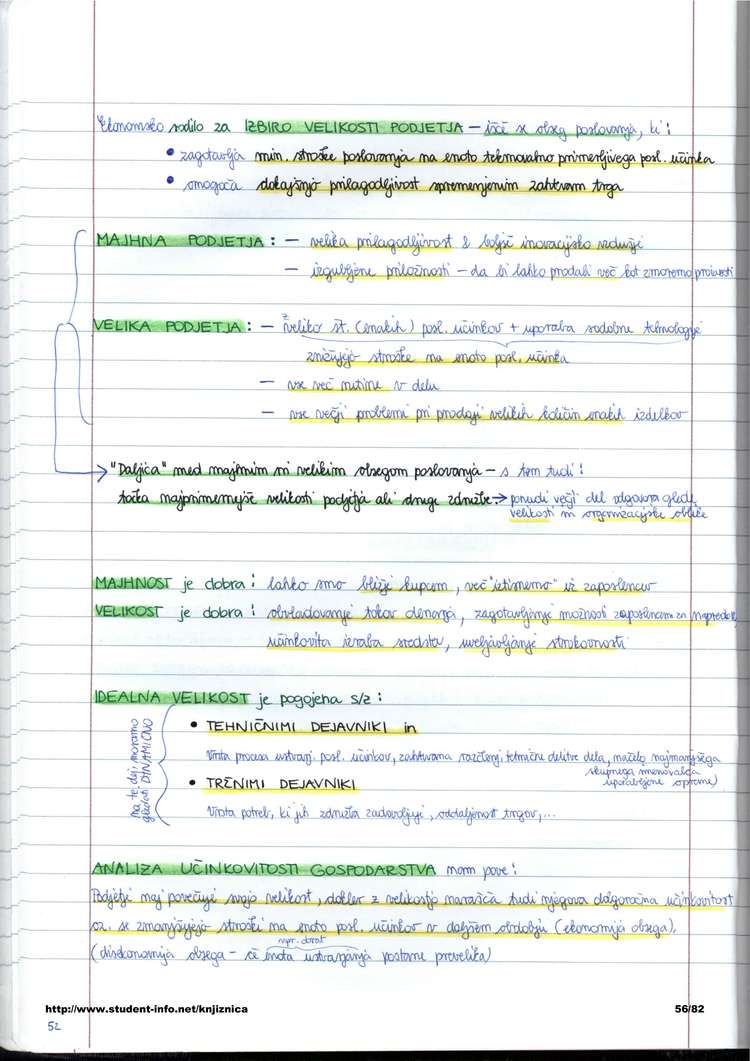 Ekonomsko sodilo za IZBIRO VELIKOSTI PODJETJA – išče se obseg poslovanja, ki:
• zagotavlja min. stroške poslovanja na enoto tekmovalno primerljivega posl. učinka
• omogoča dokajšnjo prilagodljivost spremenjenim zahtevam trga
MAJHNA PODJETJA: – velika prilagodljivost & boljše inovacijsko vzdušje
– izgubljene priložnosti – da bi lahko prodali več kot zmoremo proizvesti
VELIKA PODJETJA: – z veliko št. (enakih) posl. učinkov + uporaba sodobne tehnologije
znižujejo stroške na enoto posl. učinka
– vse več rutine v delu
– vse večji problemi pri prodaji velikih količin enakih izdelkov
→ "Daljica" med majhnim in velikim obsegom poslovanja – s tem tudi:
točka najprimernejše velikosti podjetja ali druge združbe → ponudi večji del odgovora glede
velikosti in organizacijske oblike
MAJHNOST je dobra: lahko smo bližje kupcem, več "iztisnemo" iz zaposlencev
VELIKOST je dobra: obvladovanje tokov denarja, zagotavljanje možnosti zaposlencem za napredek,
učinkovita izraba sredstev, uveljavljanje strokovnosti
IDEALNA VELIKOST je pogojena s/z:
na te dej. moramo
gledati DINAMIČNO
• TEHNIČNIMI DEJAVNIKI in
Vrsta procesa ustvarj. posl. učinkov, zahtevana razčlenj. tehnične delitve dela, načelo najmanjšega
skupnega mnenovalca
uporabljene opreme)
• TRŽNIMI DEJAVNIKI
Vrsta potreb, ki jih združba zadovoljuje, oddaljenost trgov,...
ANALIZA UČINKOVITOSTI GOSPODARSTVA nam pove:
Podjetje naj povečuje svojo velikost, dokler z velikostjo narašča tudi njegova dolgoročna učinkovitost
oz. se zmanjšujejo stroški na enoto posl. učinkov v daljšem obdobju (ekonomija obsega).
npr. obrat
(disekonomija obsega – če enota ustvarjanja postane prevelika)
http://www.student-info.net/knjiznica 56/82
52